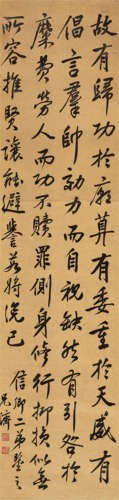 故有歸功於廟算有委重於天威有
倡言羣帥効力而自視缺然有引咎於
糜費勞人而功不贖罪側身修行抑損似無
所容推賢讓能避譽若將浼己
信卿二弟鑒之
兄濤